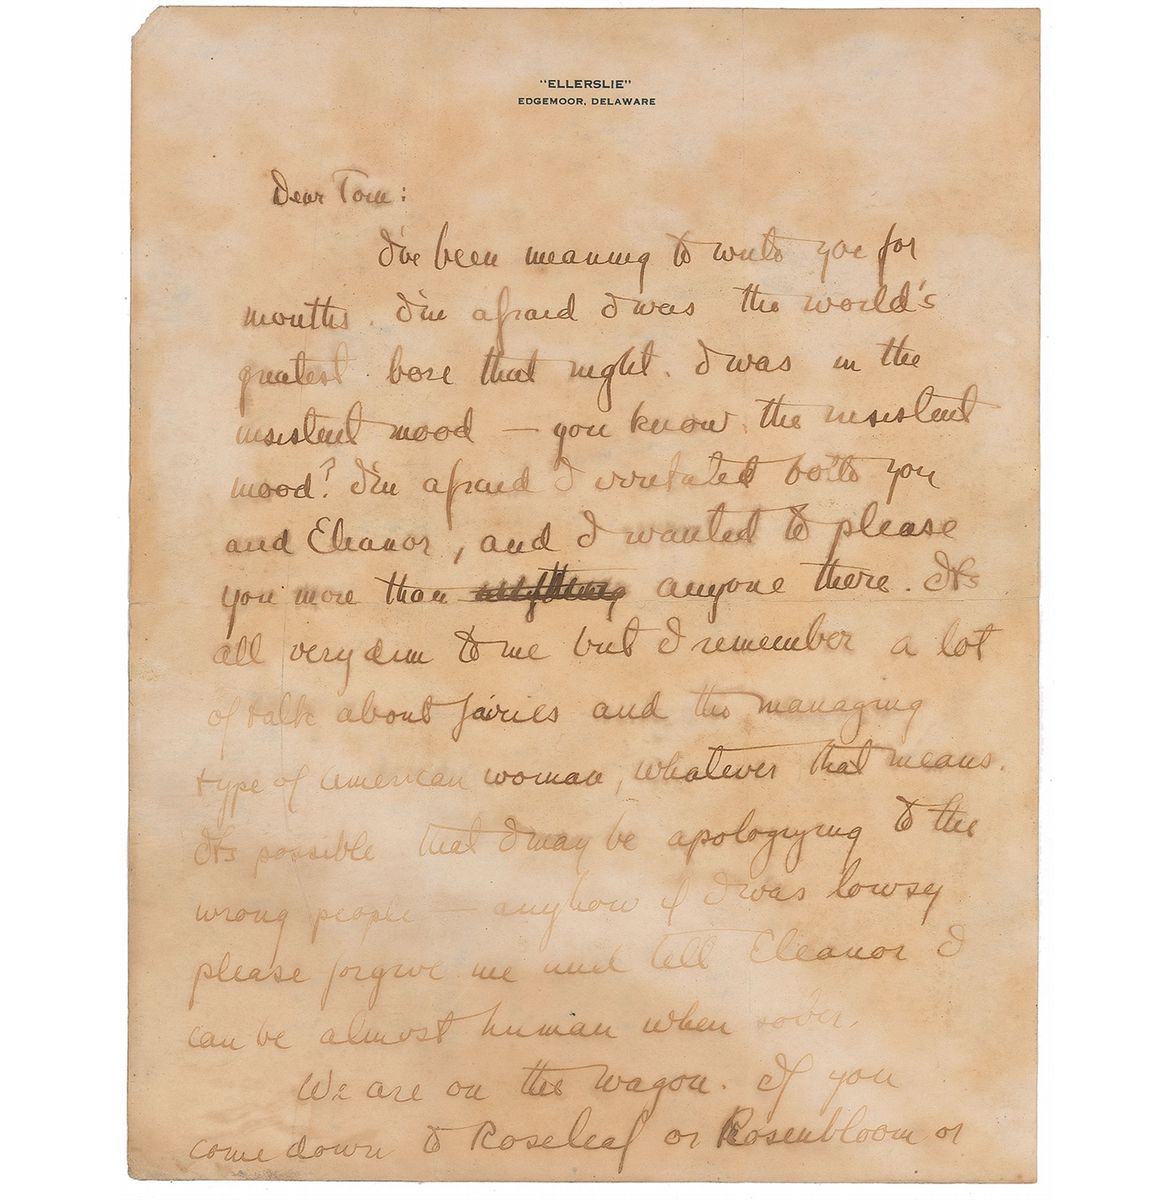 "ELLERSLIE"
EDGEMOOR, DELAWARE
Dear Tom:
I've been meaning to write you for
months. I'm afraid I was the world's
greatest bore that night. I was in the
insistent mood — you know, the insistent
mood? I'm afraid I irritated both you
and Eleanor, and I wanted to please
you more than anything anyone there. It's
all very dim to me but I remember a lot
of talk about fairies and the managing
type of American woman, whatever that means.
It's possible that I may be apologizing to the
wrong people — anyhow if I was lowsy
please forgive me and tell Eleanor I
can be almost human when sober.
We are on the wagon. If you
come down to Roseleaf or Rosenbloom or